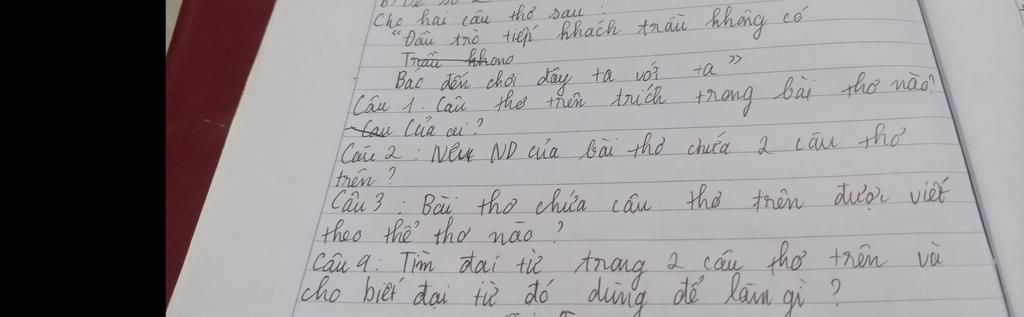 Cho hai câu thơ sau :
"Đầu trò tiếp khách trầu không có
Trầu khong
Bác đến chơi đây ta với ta"
Câu 1 : Câu thơ trên trích trong bài thơ nào?
Cau Của ai ?
Câu 2 : Nêu ND của bài thơ chứa 2 câu thơ
trên ?
Câu 3 : Bài thơ chứa câu thơ trên được viết
theo thể thơ nào ?
Câu 4 : Tìm đại từ trong 2 câu thơ trên và
cho biết đại từ đó dùng để làm gì ?